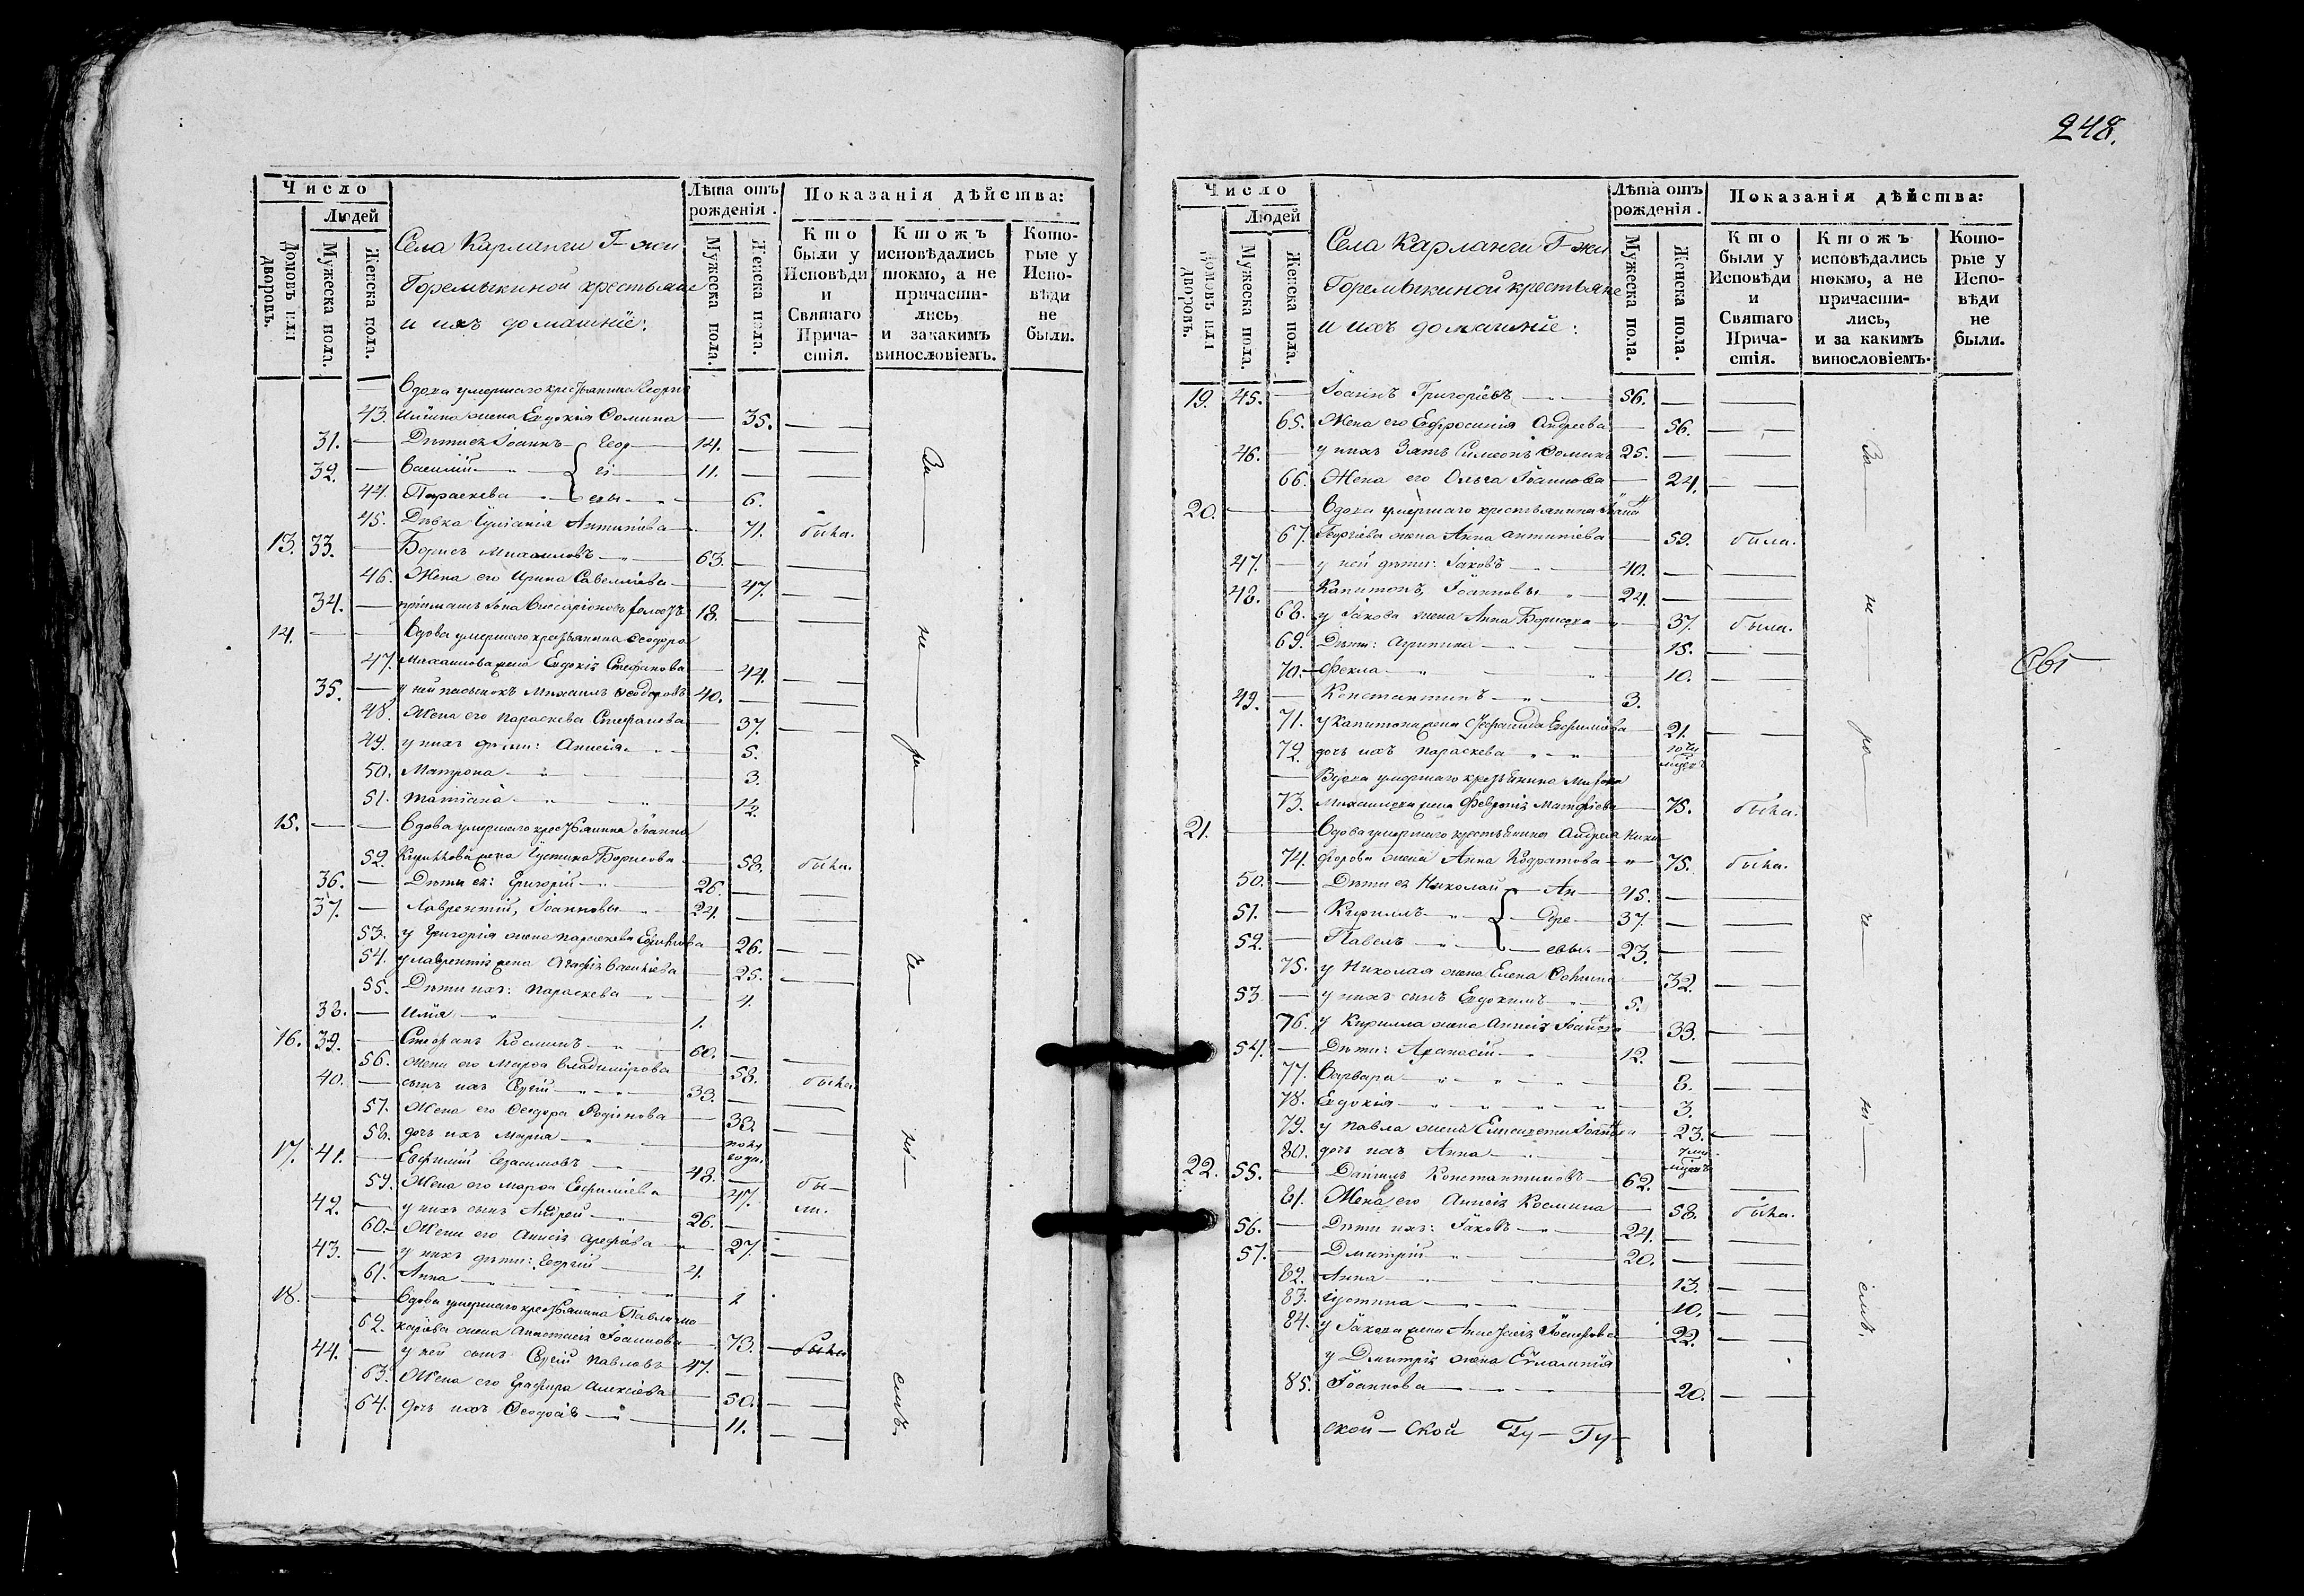 248.
Число
Людей
Домовъ или дворовъ.
Мужеска пола.
Женска пола.
Села Карланги Г-жи
Горемыкиной крестьяне
и ихъ домашніе:
Лѣта отъ рожденія.
Мужеска пола.
Женска пола.
Показанія дѣйства:
Кто были у Исповѣди и Святаго Причастія.
Ктожъ исповѣдались токмо, а не причастились, и закакимъ винословіемъ.
Которые у Исповѣди не были.
Вдова умершаго крестьянина Георгія
43. жена Евдокія Фомина 35.
31. Дѣти ея Іоаннъ Геор 14.
32. Василій гі 11.
44. Параскева евы 6.
45. Дѣвка Іуліанія Антипова 71. была.
13. 33. Борисъ Михаиловъ 63.
46. Жена его Ирина Савелліева 47.
34. Іона Виссаріоновъ 18.
14. Вдова умершаго крестьянина Феодора
47. Михаилова жена Евдокія Стефанова 44.
35. у ней пасынокъ Михаилъ Феодоровъ 40.
48. Жена его Параскева Стефанова 37.
49. у нихъ дѣти: Анисія 5.
50. Матрона 3.
51. Татіана 1/2.
15. Вдова умершаго крестьянина Іоанна
52. Кириллова жена Іустина Борисова 58. была.
36. Дѣти ея: Григорій 26.
37. Лаврентій, Іоанновы 24.
53. у Григорія жена Параскева 26.
54. у Лаврентія жена Агафія Василіева 25.
55. Дѣти ихъ: Параскева 4.
38. Илія 1.
16. 39. Стефанъ Косминъ 60.
56. Жена его Марфа Владимірова 58. была.
40. сынъ ихъ Сергій 33.
57. Жена его Феодора Родіонова 33.
58. дочь ихъ Марія полу года.
17. 41. Евфимій Герасимовъ 48. бы-
59. Жена его Марфа Евфиміева 47. ли.
42. у нихъ сынъ Андрей 26.
60. Жена его Анисія 27.
43. у нихъ дѣти: Георгій 4.
61. Анна 1
18. Вдова умершаго крестьянина Павла Ма
62. карова жена Анастасія Іоаннова 73. была
44. у ней сынъ Сергій Павловъ 47.
63. Жена его Глафира Алексіева 50.
64. дочь ихъ Феодосія 11.
За не ра че ні емъ.
Число
Людей
Домовъ или дворовъ.
Мужеска пола.
Женска пола.
Села Карланги Г-жи
Горемыкиной крестьяне
и ихъ домашніе:
Лѣта отъ рожденія.
Мужеска пола.
Женска пола.
Показанія дѣйства:
Кто были у Исповѣди и Святаго Причастія.
Ктожъ исповѣдались токмо, а не причастились, и за какимъ винословіемъ.
Которые у Исповѣди не были.
19. 45. Іоаннъ Григоріевъ 56.
65. Жена его Евфросинія Андреева 56.
46. у нихъ Зять Симеонъ Фоминъ 25.
66. Жена его Ольга Іоаннова 24.
20. Вдова умершаго крестьянина
67. Георгіева жена Анна Антипіева 59. была.
47. у ней дѣти: Іаковъ 40.
48. Капитонъ, Іоанновы 24.
68. у Іакова жена Анна Борисова 37. была.
69. Дѣти: Агрипина 15.
70. Фекла 10.
49. Константинъ 3.
71. у Капитона жена Евфиміева 21.
72. дочь ихъ Параскева
Вдова умершаго крестьянина
73. Михаилова жена Февронія Матфіева 75. была.
21. Вдова умершаго крестьянина Андрея Ники
74. форова жена Анна Кодратова 75. была.
50. Дѣти ея Николай Ан 45.
51. Кириллъ дре 37.
52. Павелъ евы. 23.
75. у Николая жена Елена 32.
53 у нихъ сынъ Евдокимъ 5.
76. у Кирилла жена Анисія Іоаннова 33.
54. Дѣти: Афанасій 12.
77. Варвара 8.
78. Евдокія 3.
79. у Павла жена Елисавета Іоаннова 23.
80. дочь ихъ Анна
22. 55. Даніилъ Константиновъ 62.
81. Жена его Анисія Космина 58. была.
56. Дѣти ихъ: Іаковъ 24.
57. Дмитрій 20.
82. Анна 13.
83. Іустина 10.
84. у Іакова жена Анастасія Іосифова 22.
у Дмитрія жена Евлампія
85. Іоаннова 20.
За не ра че ні емъ.
ской - Ской Гу - Гу -